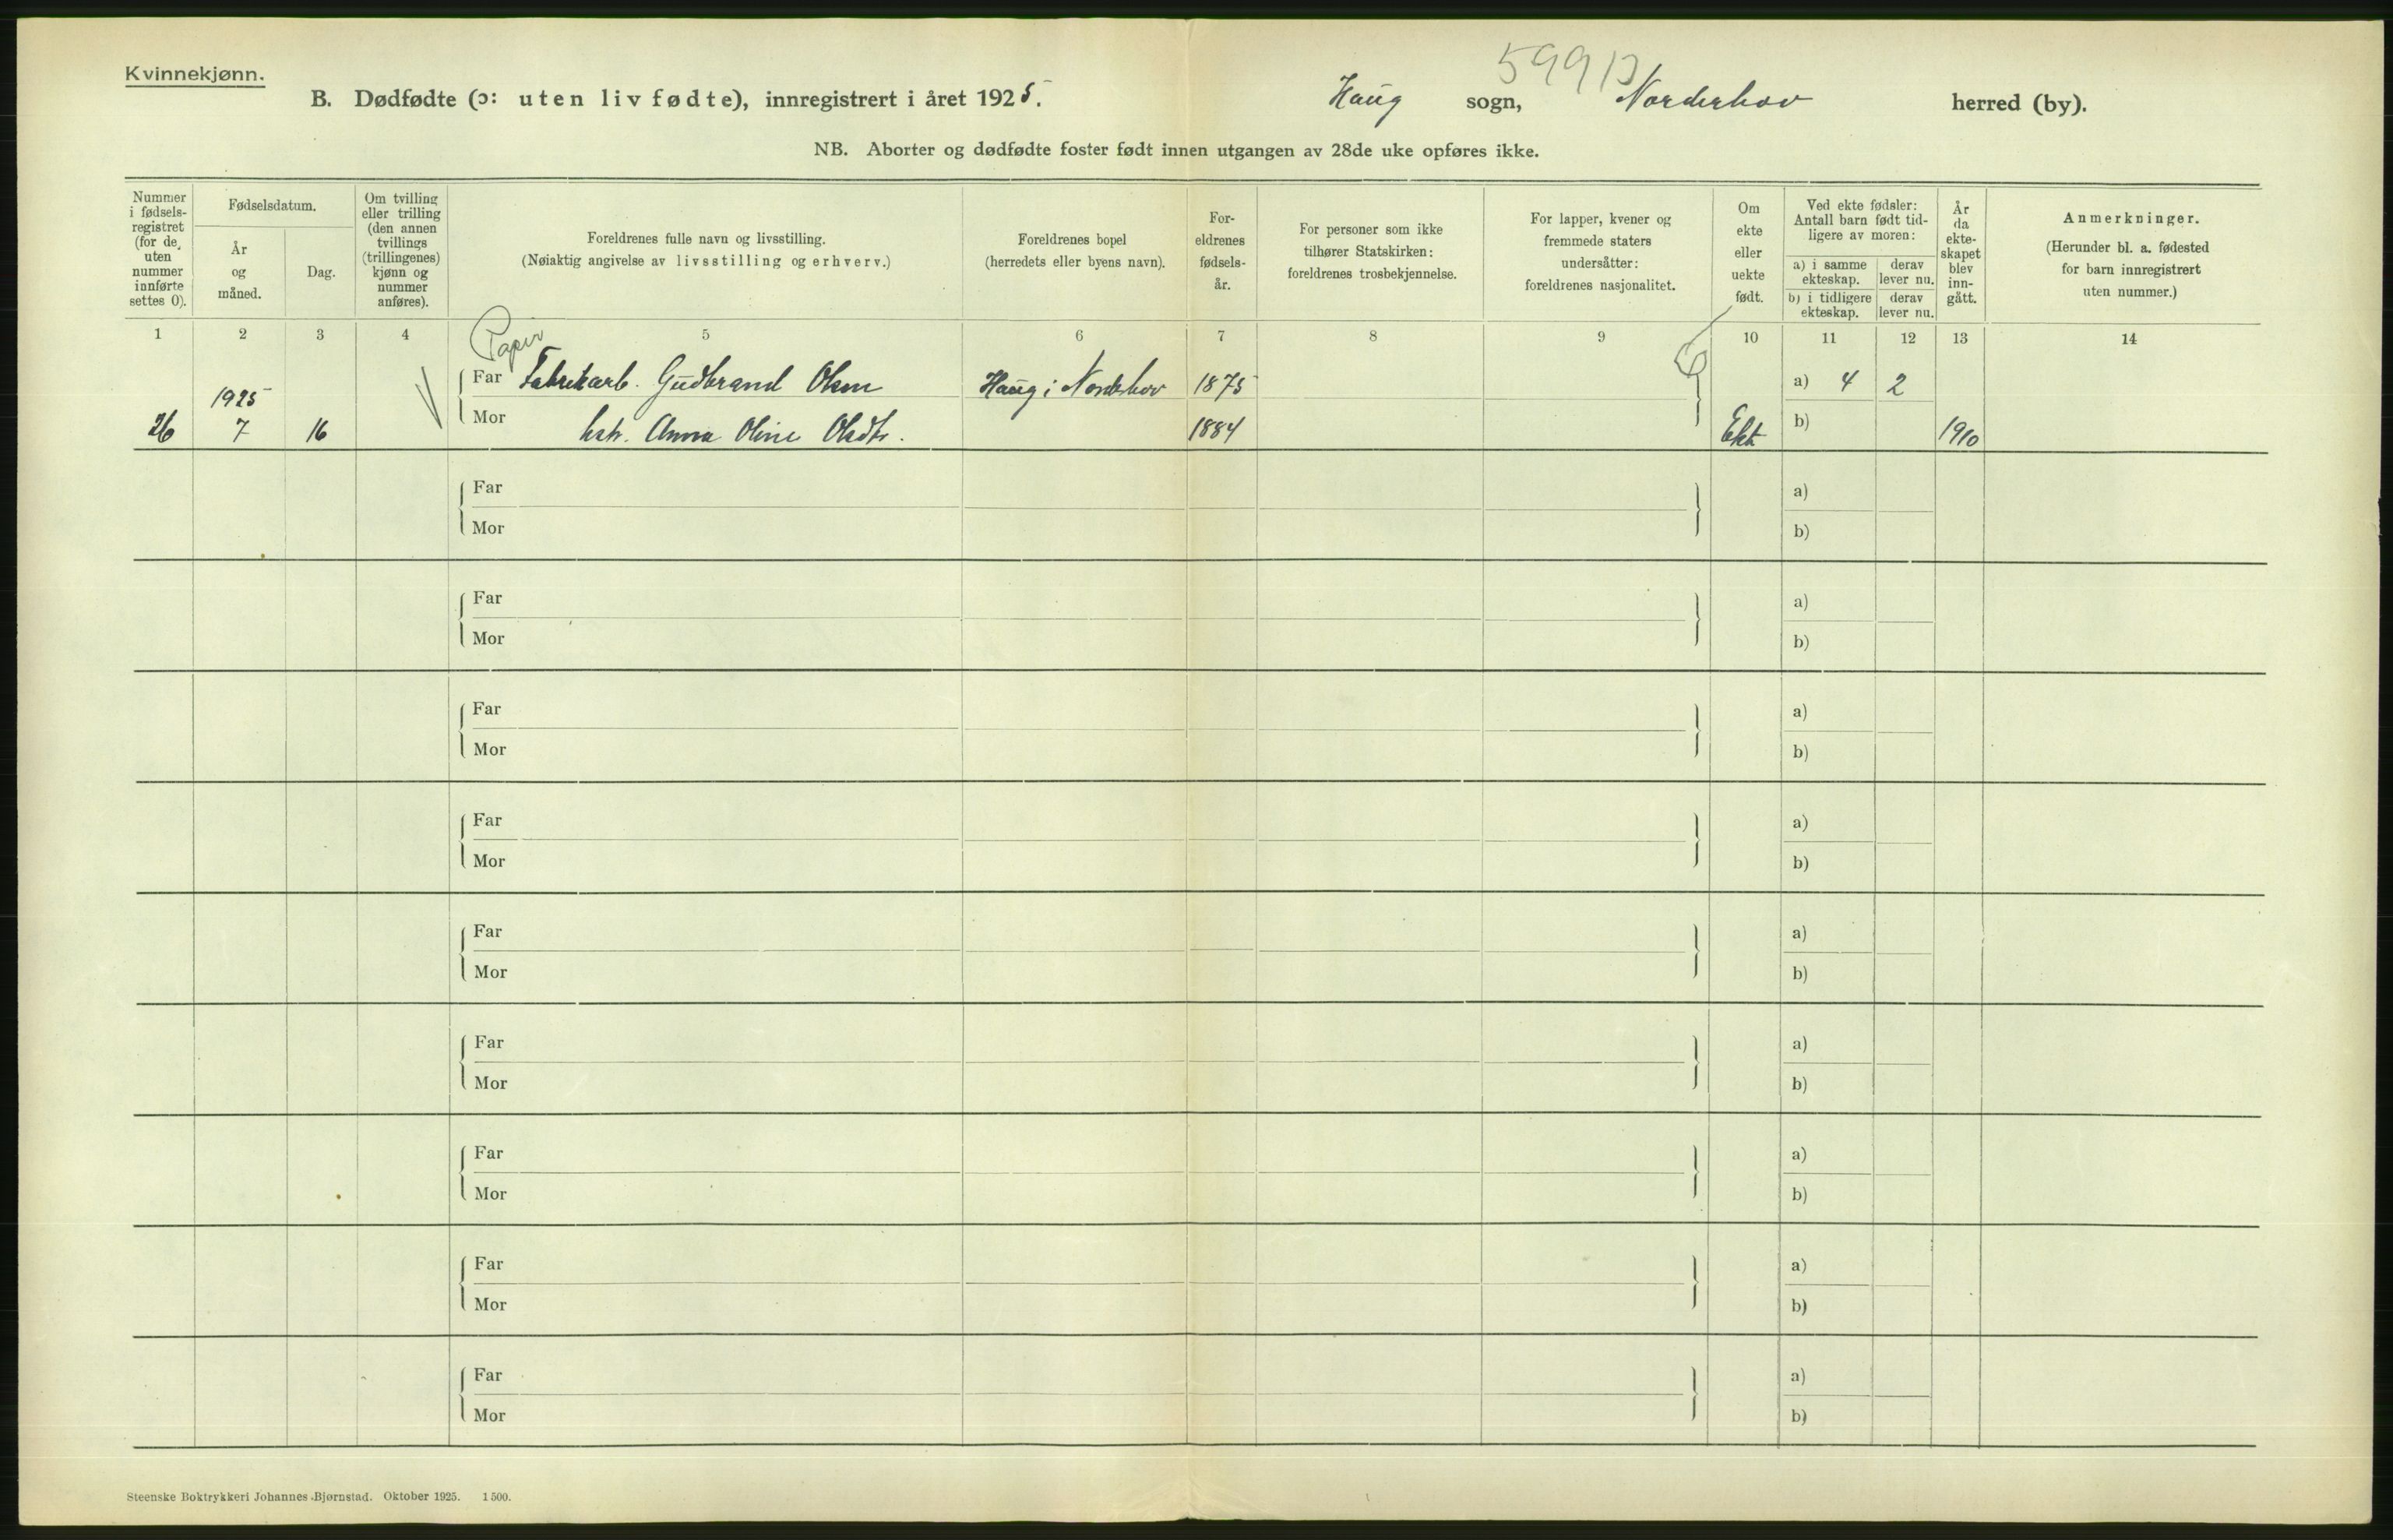 Kvinnekjønn.
59913
B. Dødfødte (ɔ: uten liv fødte), innregistrert i året 1925. Haug sogn, Norderhov herred (by).
NB. Aborter og dødfødte foster født innen utgangen av 28de uke opføres ikke.
Nummer i fødsels-registret (for de uten nummer innførte settes 0).
Fødselsdatum.
År og måned.
Dag.
Om tvilling eller trilling (den annen tvillings (trillingenes) kjønn og nummer anføres).
Foreldrenes fulle navn og livsstilling.
(Nøiaktig angivelse av livsstilling og erhverv.)
Foreldrenes bopel
(herredets eller byens navn).
For-eldrenes fødsels-år.
For personer som ikke tilhører Statskirken: foreldrenes trosbekjennelse.
For lapper, kvener og fremmede staters undersåtter: foreldrenes nasjonalitet.
Om ekte eller uekte født.
Ved ekte fødsler: Antall barn født tid-ligere av moren:
a) i samme ekteskap.
derav lever nu.
b) i tidligere ekteskap.
derav lever nu.
År da ekte-skapet blev inn-gått.
Anmerkninger.
(Herunder bl. a. fødested for barn innregistrert uten nummer.)
1 2 3 4 5 6 7 8 9 10 11 12 13 14
Papir
Far Fabrikarb. Gudbrand Olsen Haug i Norderhov 1875 a) 4 2
1925
26 7 16 Mor hstr. Anna Oline Olsdtr. 1884 Ekte b) 1910
Far a)
Mor b)
Far a)
Mor b)
Far a)
Mor b)
Far a)
Mor b)
Far a)
Mor b)
Far a)
Mor b)
Far a)
Mor b)
Far a)
Mor b)
Far a)
Mor b)
Steenske Boktrykkeri Johannes Bjørnstad. Oktober 1925. 1500.